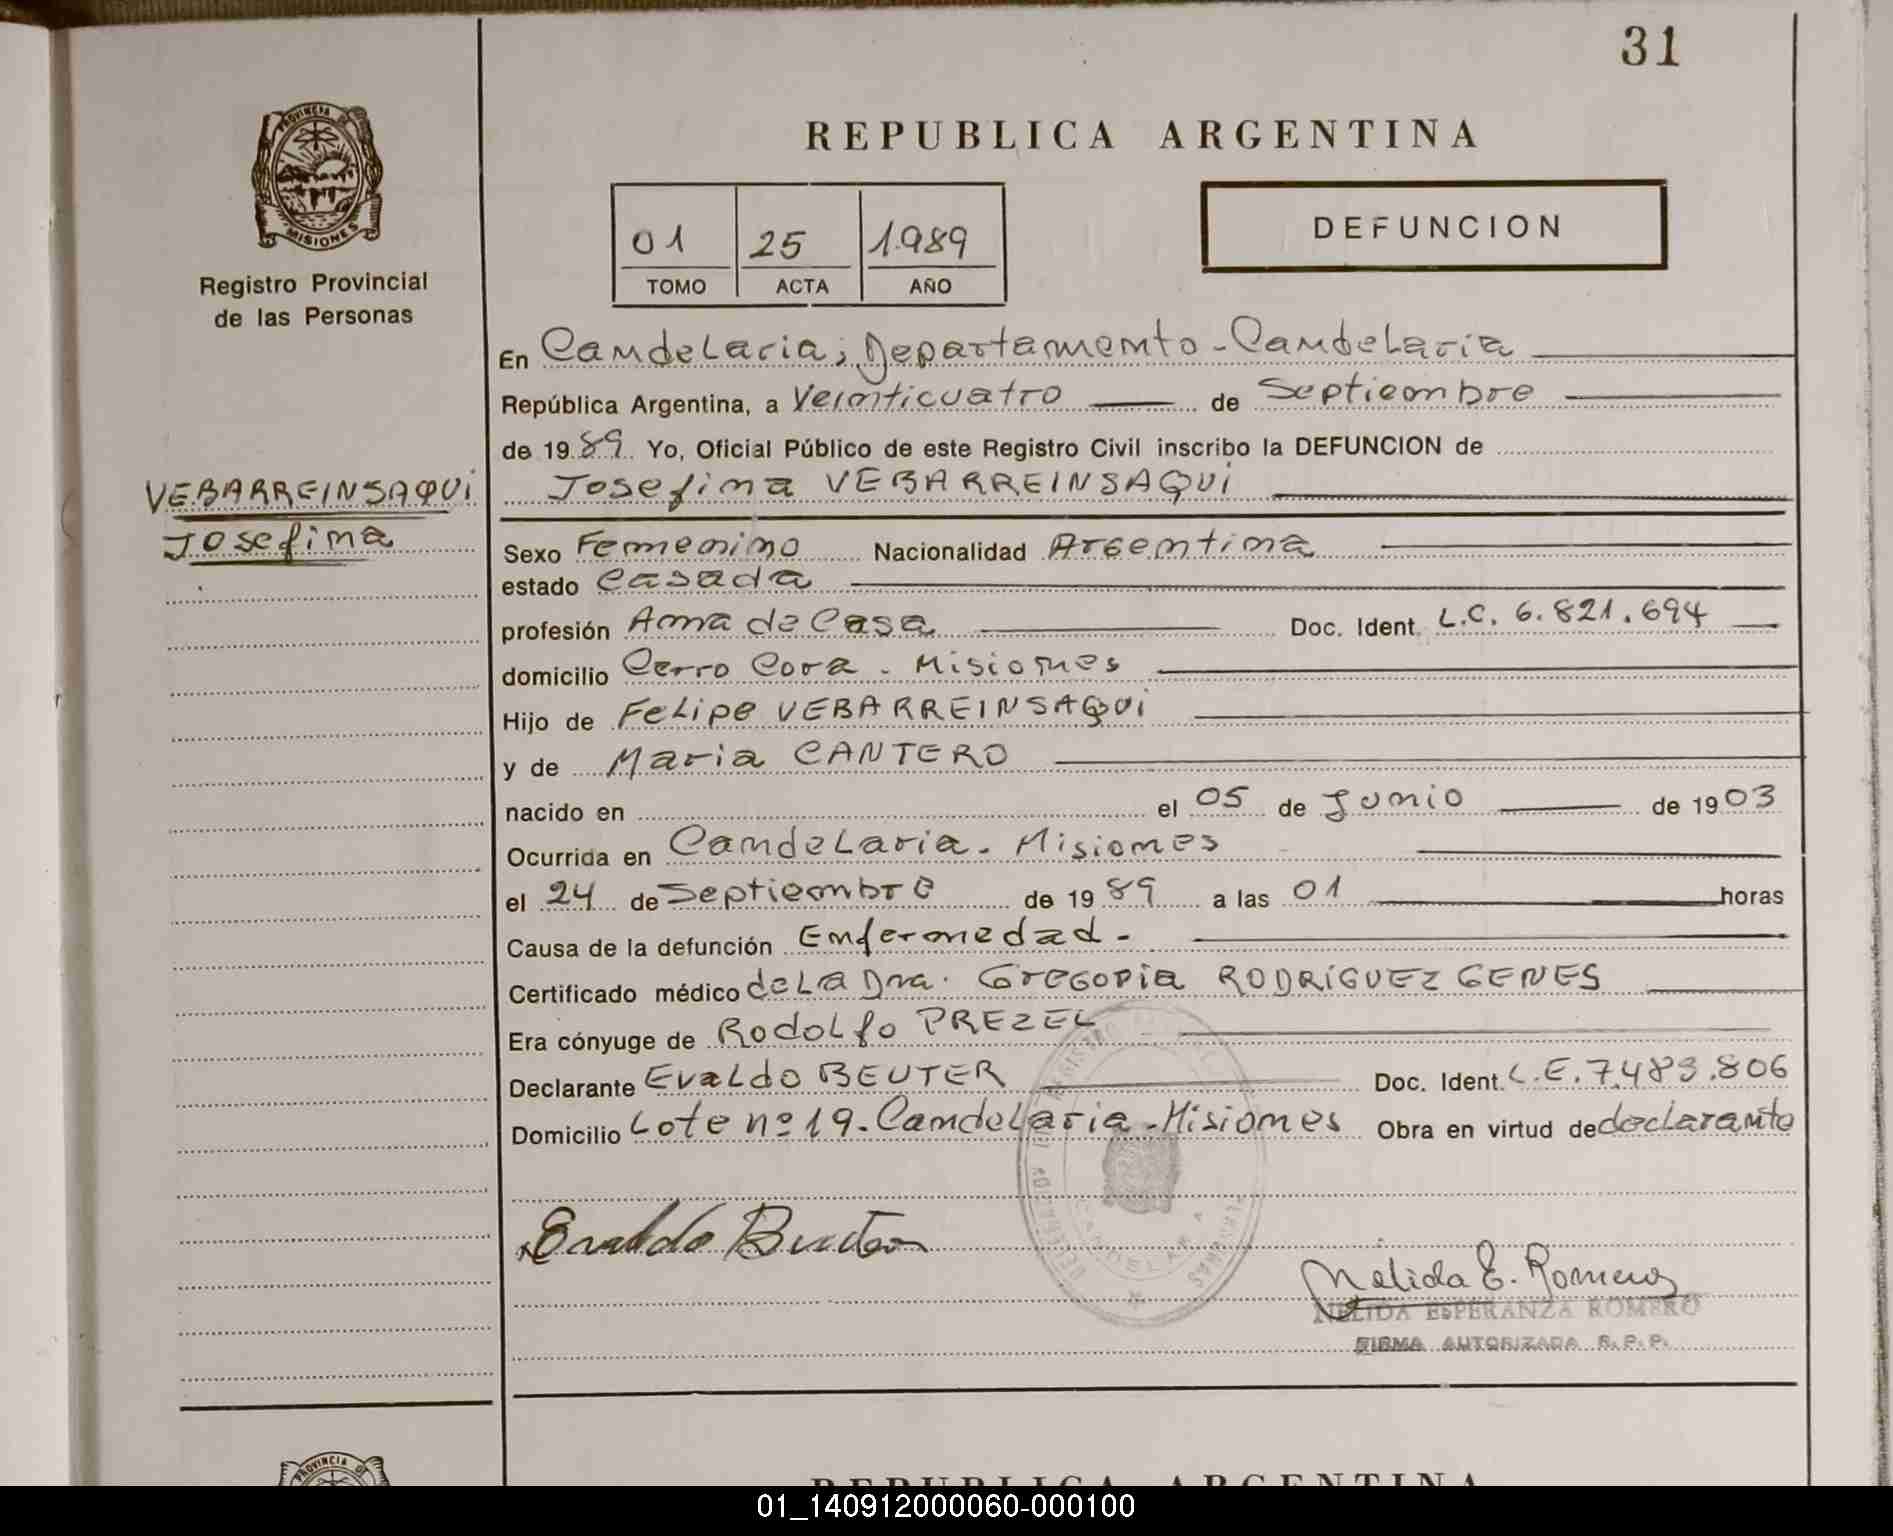 31
PROVINCIA DE
MISIONES
Registro Provincial
de las Personas
REPUBLICA ARGENTINA
01 25 1.989
TOMO ACTA AÑO
DEFUNCION
En Candelaria, Departamento - Candelaria
República Argentina, a Veinticuatro de Septiembre
de 1989. Yo, Oficial Público de este Registro Civil inscribo la DEFUNCION de
VEBARREINSAQUI
Josefina
Josefina VEBARREINSAQUI
Sexo Femenino Nacionalidad Argentina
estado Casada
profesión Ama de Casa Doc. Ident. L.C. 6.821.694
domicilio Cerro Cora - Misiones
Hijo de Felipe VEBARREINSAQUI
y de Maria CANTERO
nacido en el 05 de Junio de 1903
Ocurrida en Candelaria - Misiones
el 24 de Septiembre de 1989 a las 01 horas
Causa de la defunción Enfermedad -
Certificado médico de La Dra. Gregoria RODRÍGUEZ GENES
Era cónyuge de Rodolfo PREZEL
Declarante Evaldo BEUTER Doc. Ident. L.E. 7.483.806
Domicilio Lote nº 19 - Candelaria - Misiones Obra en virtud de declarante
Evaldo Beuter
Nélida E. Romero
NELIDA ESPERANZA ROMERO
FIRMA AUTORIZADA R.P.P.
CANDELARIA
PROVINCIA DE
REPUBLICA ARGENTINA
01_140912000060-000100